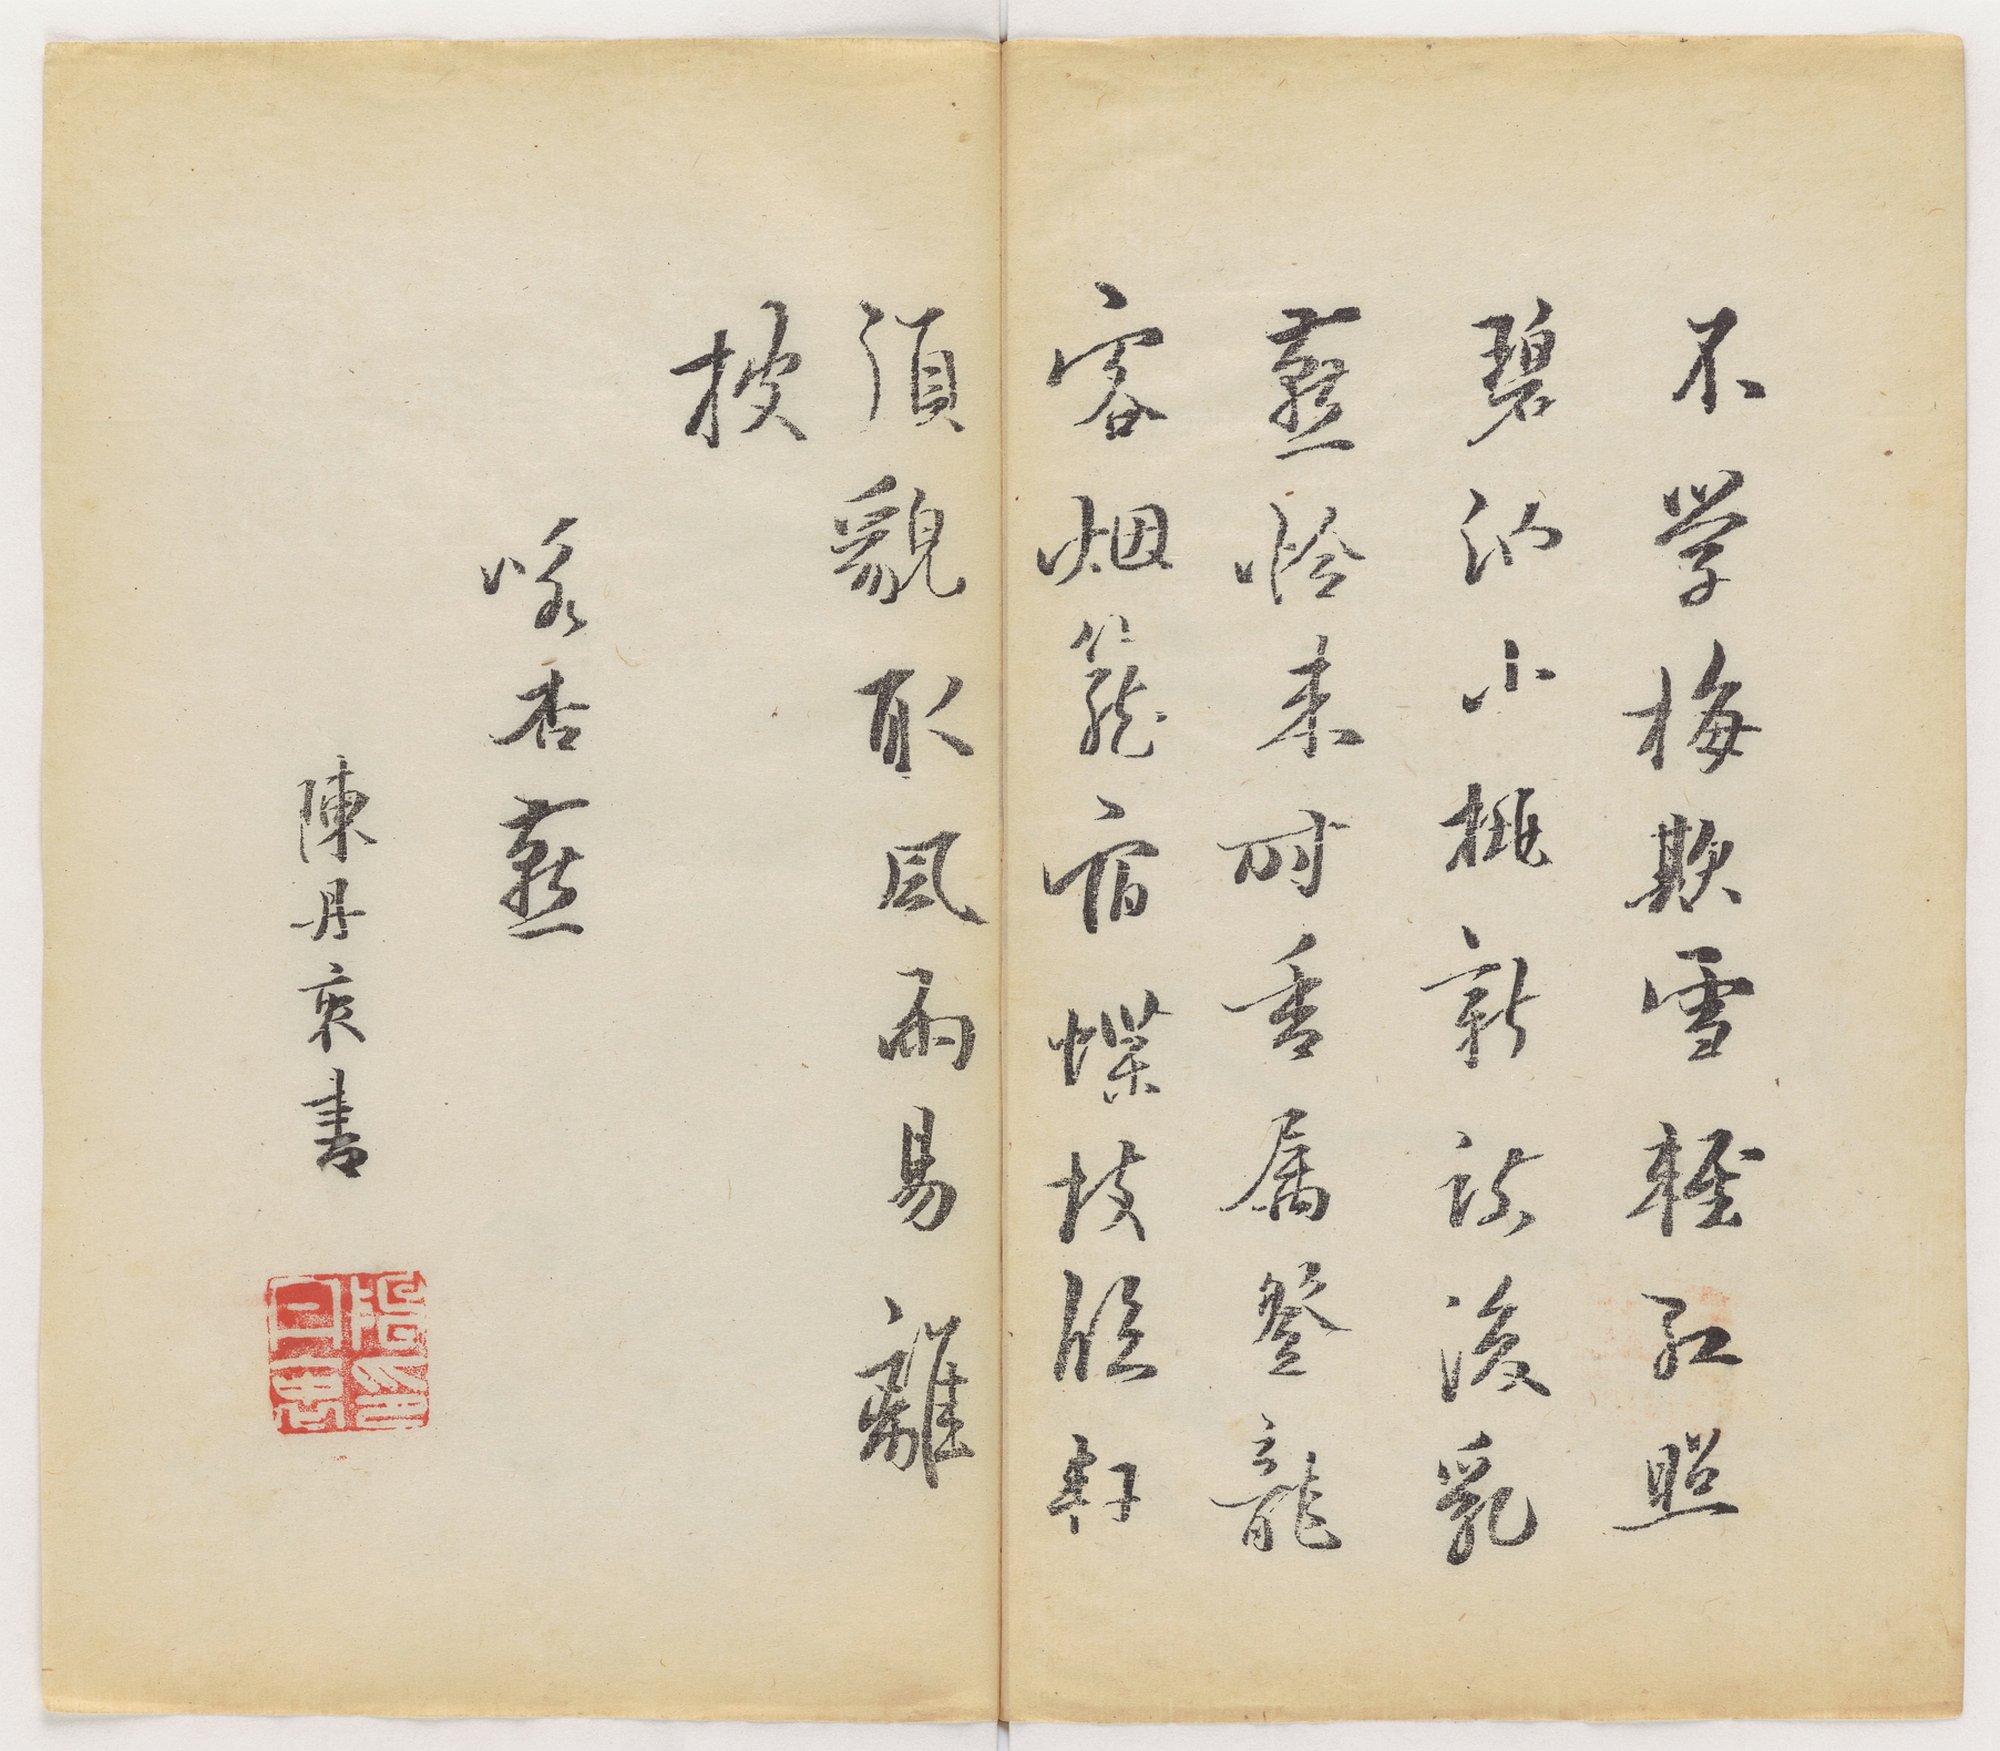 不學梅欺雪輕紅照
碧池小桃新謝後乳
燕恰來時香屬登龍
客烟籠宿蝶枝臨軒
須貌取風雨易離
披
咏杏燕
陳丹衷書
陳印丹衷